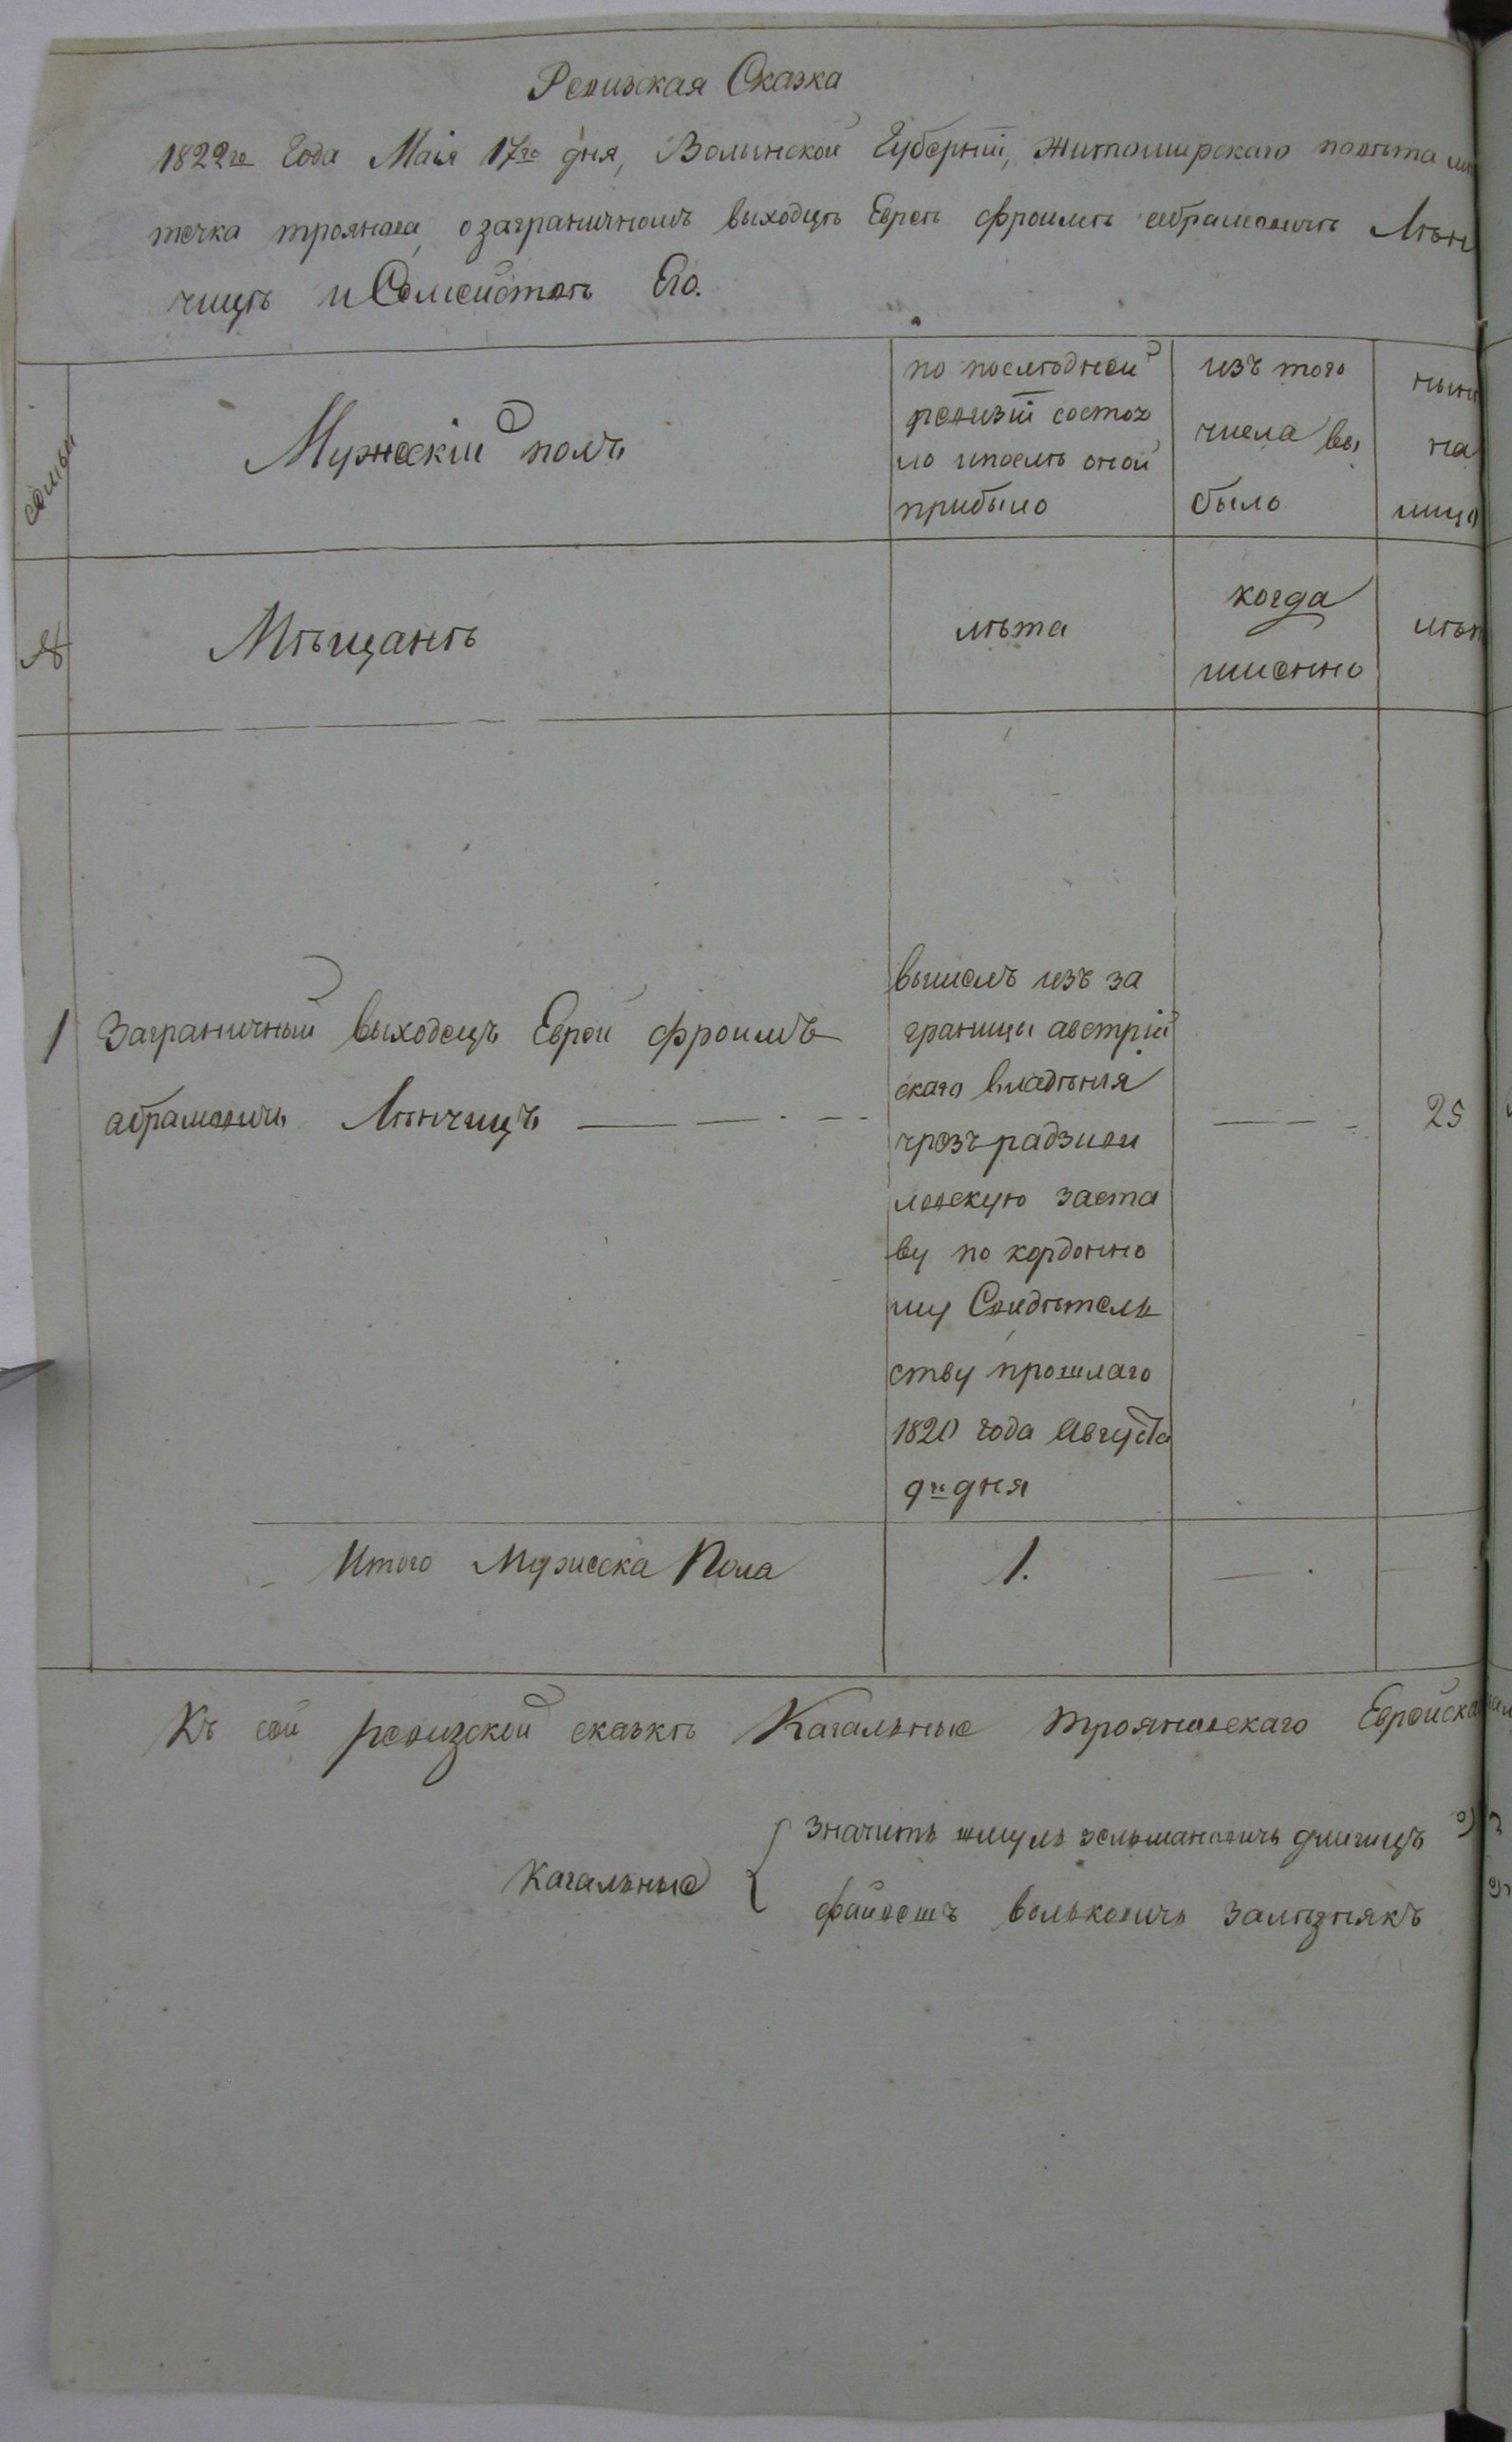 Ревизская Сказка
1822го Года Маія 17го дня, Волынской Губерніи, житомирскаго повѣта мѣ
течка троянова, о заграничномъ выходцѣ Евреѣ фроимѣ абрамовичѣ Лѣн
чицѣ и Семействѣ Его.
семьи
Мужескій полъ
по послѣдней
ревизіи состоя
ло и послѣ оной
прибыло
изъ того
числа вы
было
нынѣ
на
лицо
№
Мѣщанѣ
лѣта
когда
именно
лѣт
1
Заграничный выходецъ Еврей фроимъ
абрамовичъ Лѣнчицъ
вышелъ изъ за
границы австрій
скаго владѣнія
чрезъ радзиви
ловскую заста
ву по кордонно
му Свидѣтель
ству прошлаго
1820 года Августа
9го дня
25
Итого Мужеска Пола
1.
Къ сей ревизской сказкѣ Кагальные трояновскаго Еврейска
Кагальные
значитъ шмуль зельмановичъ длигицъ
файвешъ вольковичъ зализнякъ